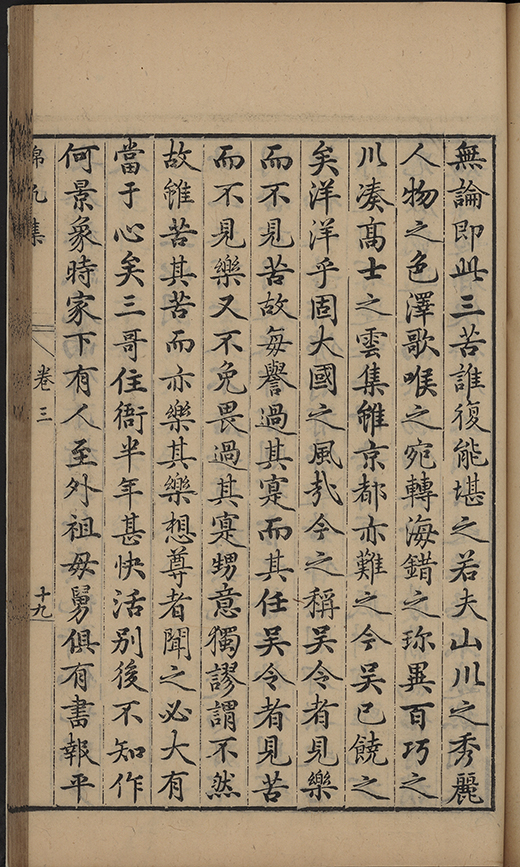 無論即此三苦誰復能堪之若夫山川之秀麗
人物之色澤歌喉之宛轉海錯之珎異百巧之
川湊髙士之雲集雖京都亦難之今吴已饒之
矣洋洋乎固大國之風㢤今之稱吴令者見樂
而不見苦故每譽過其寔而其任吴令者見苦
而不見樂又不免畏過其寔甥意獨謬謂不然
故雖苦其苦而亦樂其樂想尊者聞之必大有
當于心矣三哥住衙半年甚快活别後不知作
何景象時家下有人至外祖母舅俱有書報平
錦帆集
卷三
十九